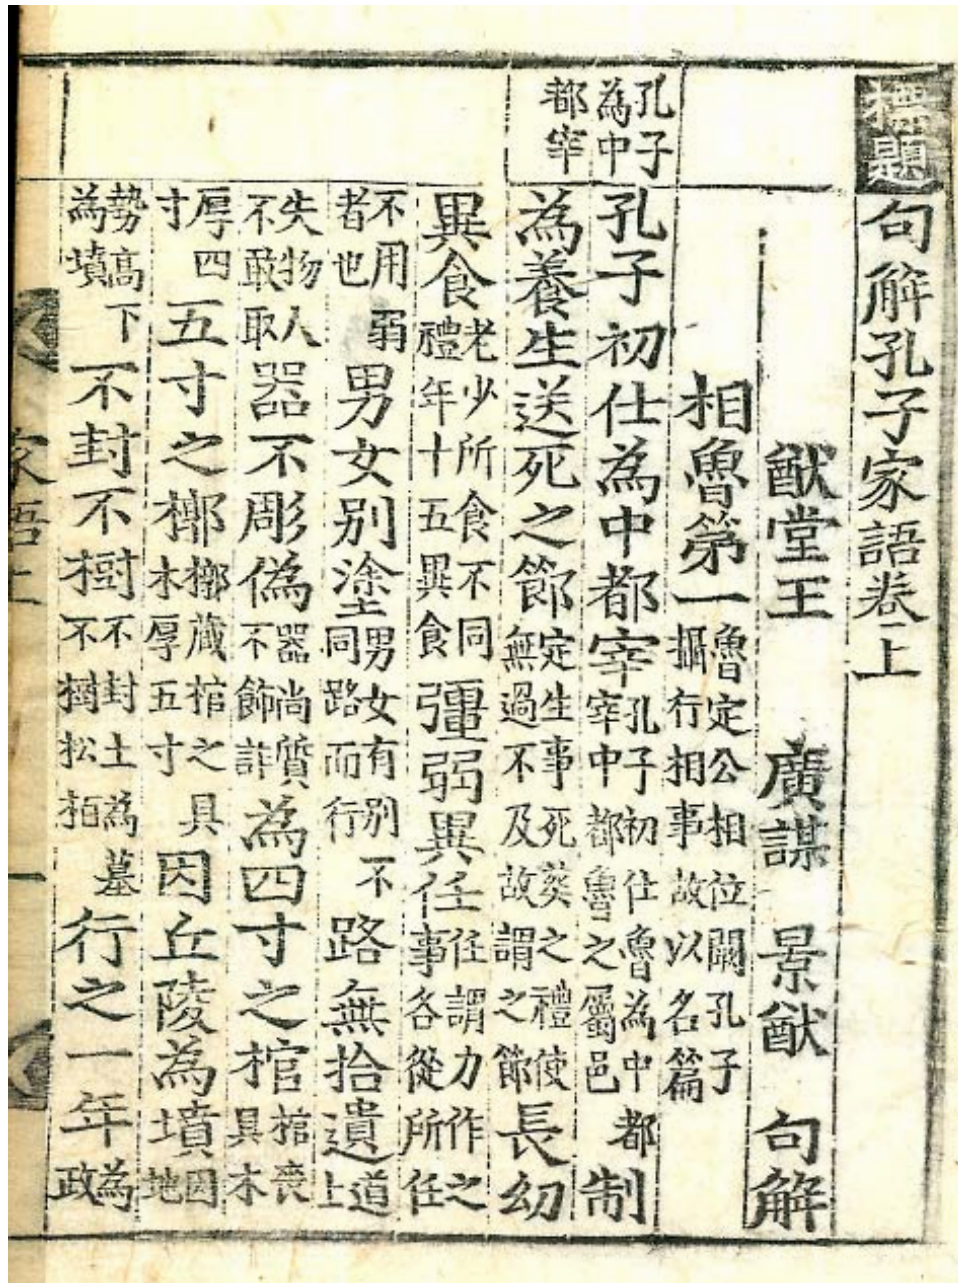 標題句解孔子家語卷上
猷堂王 廣謀 景猷 句解
相魯第一魯定公相位闕孔子攝行相事故以名篇
孔子
為中
都宰
孔子初仕為中都宰孔子初仕魯為中都宰中都魯之屬邑制
為養生送死之節定生事死葬之禮使無過不及故謂之節長幼
異食老少所食不同禮年十五異食彊弱異任任謂力作之事各從所任
不用弱者也男女別塗男女有別不同路而行路無拾遺道上
失物人不敢取器不彫偽器尚質不飾詐為四寸之棺棺喪具木
厚四寸五寸之槨槨藏棺之具木厚五寸因丘陵為墳因地
勢高下為墳不封不樹不封土為墓不樹松柏行之一年為政
家語上 一